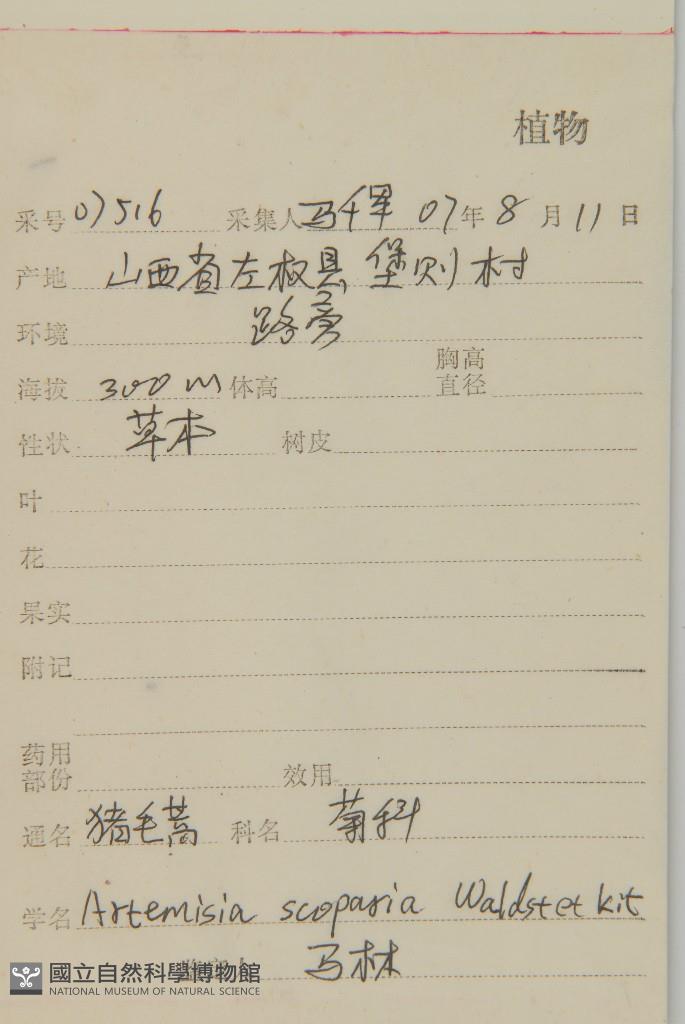 植物
采号 07516 采集人 马千里 07年8月11日
产地 山西省左权县堡则村
环境 路旁
海拔 300 m 体高 胸高直径
性状 草本 树皮
叶
花
果实
附记
药用部份 效用
通名 猪毛蒿 科名 菊科
学名 Artemisia scoparia Waldst et kit
马林
國立自然科學博物館
NATIONAL MUSEUM OF NATURAL SCIENCE